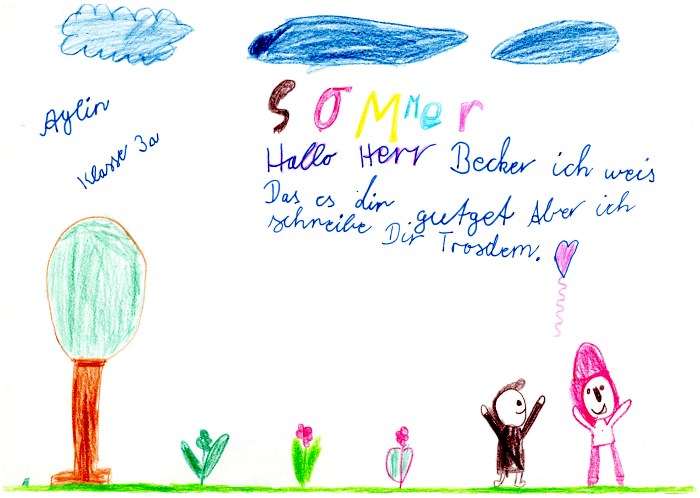 Aylin
Klasse 3a
SOMMer
Hallo Herr Becker ich weis
Das es dir gutget Aber ich
schreibe Dir Trosdem.